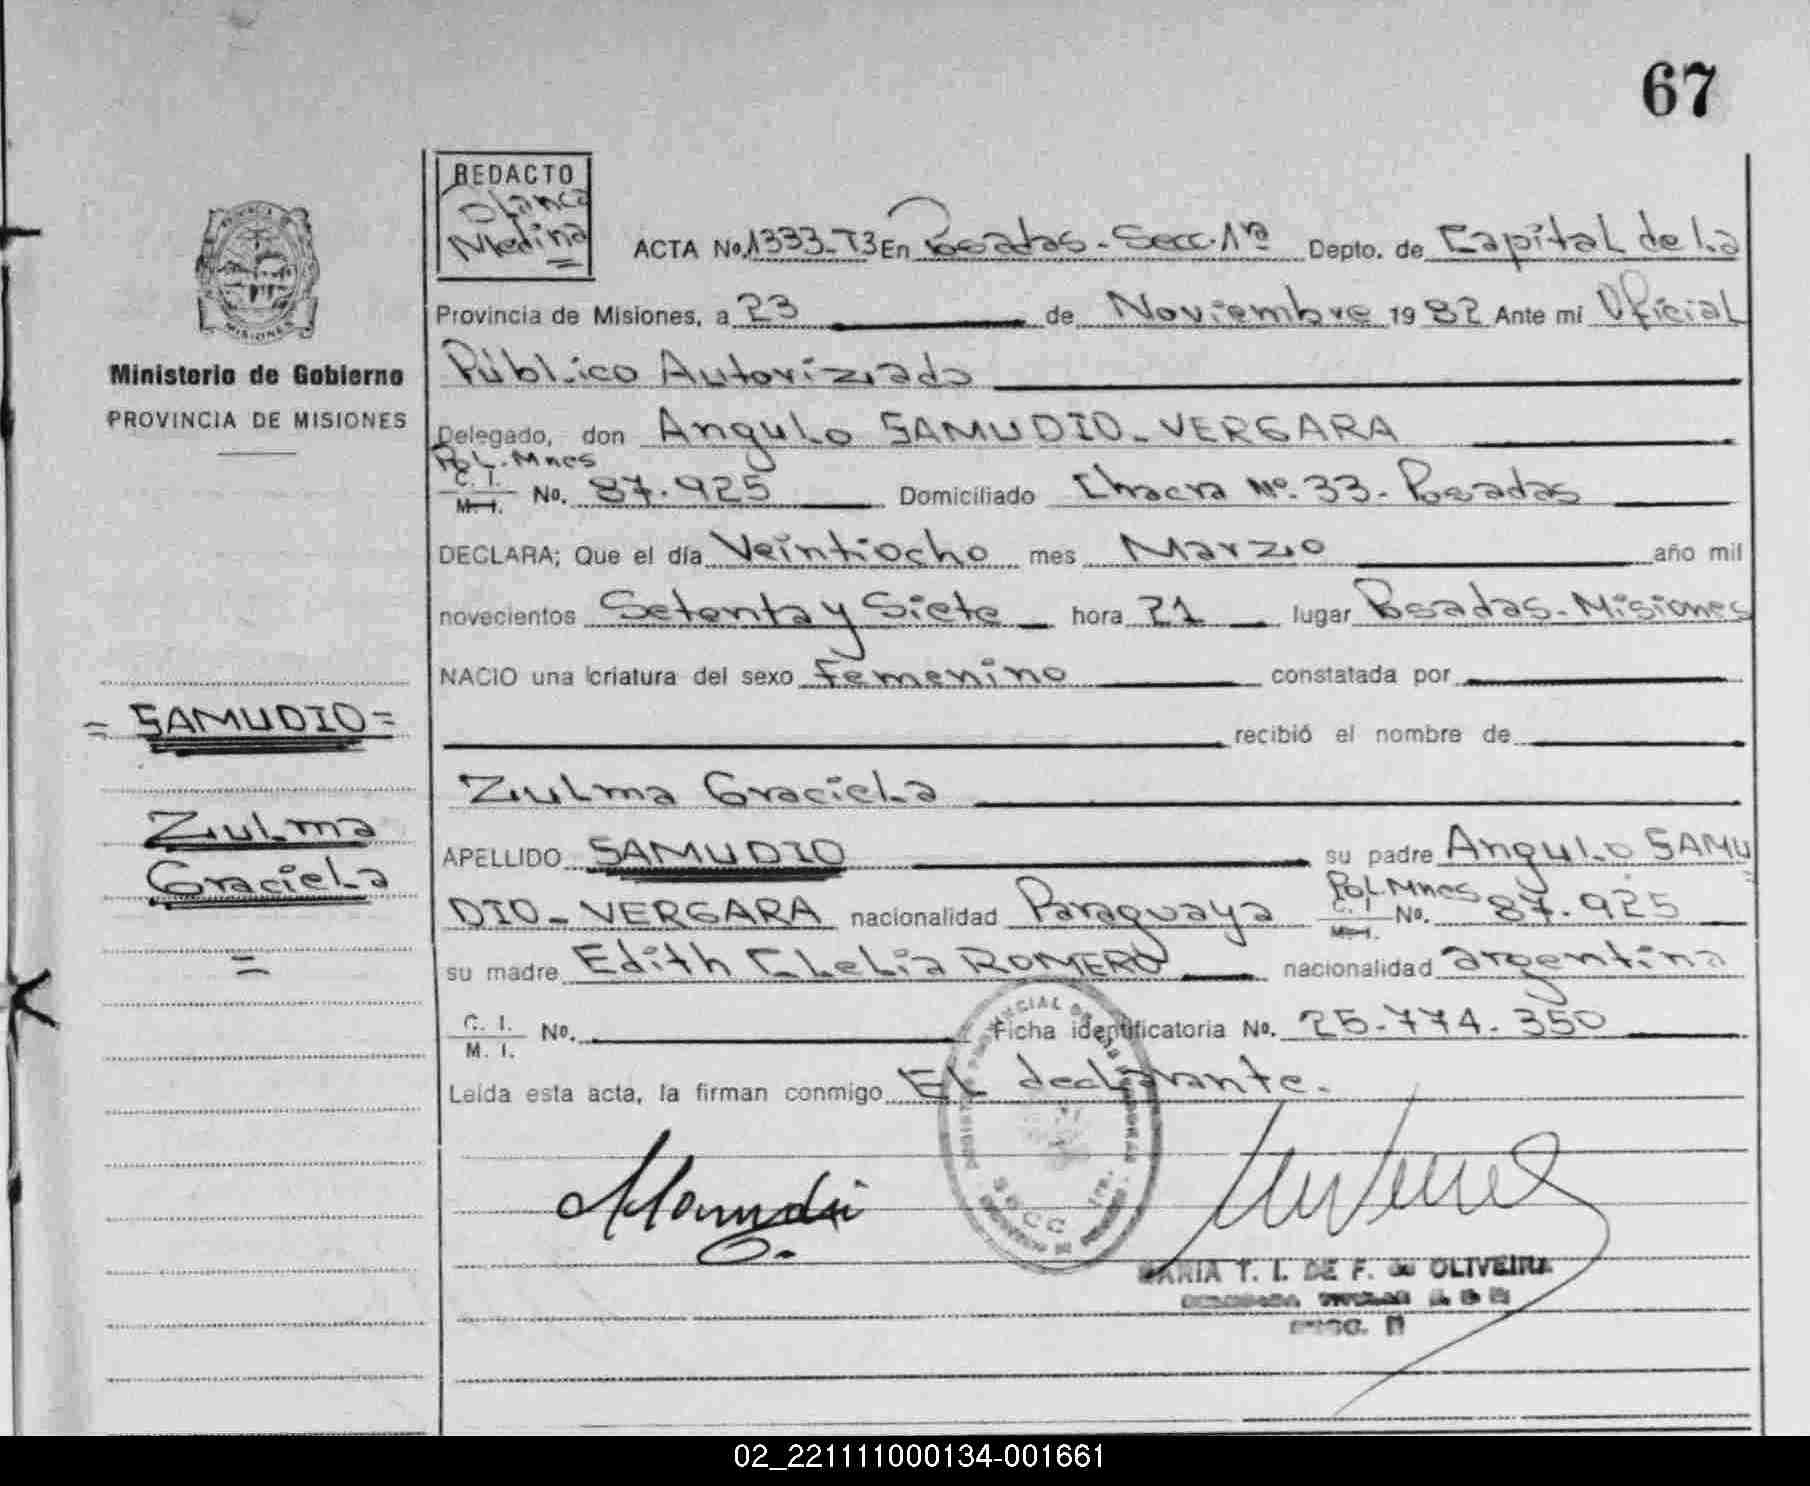 67
REDACTO
Blanca
Medina
ACTA No. 1333-T3 En Posadas - Secc. 1ra Depto. de Capital de la
Provincia de Misiones, a 23 de Noviembre 1982 Ante mi Oficial
Público Autorizado
Delegado, don Angulo SAMUDIO - VERGARA
Pol. Mnes
C. I.
M. I.
No. 87.925 Domiciliado Chacra Nº. 33 - Posadas
DECLARA; Que el día Veintiocho mes Marzo año mil
novecientos Setenta y Siete hora 21 lugar Posadas - Misiones
NACIO una criatura del sexo femenino constatada por
recibió el nombre de
Zulma Graciela
APELLIDO SAMUDIO su padre Angulo SAMU
DIO - VERGARA nacionalidad Paraguaya Pol. Mnes C. I. M. I. No. 87.925
su madre Edith Clelia ROMERO nacionalidad argentina
C. I.
M. I.
No. Ficha identificatoria No. 25.774.350
Leída esta acta, la firman conmigo El declarante.
MARIA T. I. DE F. de OLIVEIRA
MISIONES
Ministerio de Gobierno
PROVINCIA DE MISIONES
= SAMUDIO =
Zulma
Graciela
=
02_221111000134-001661